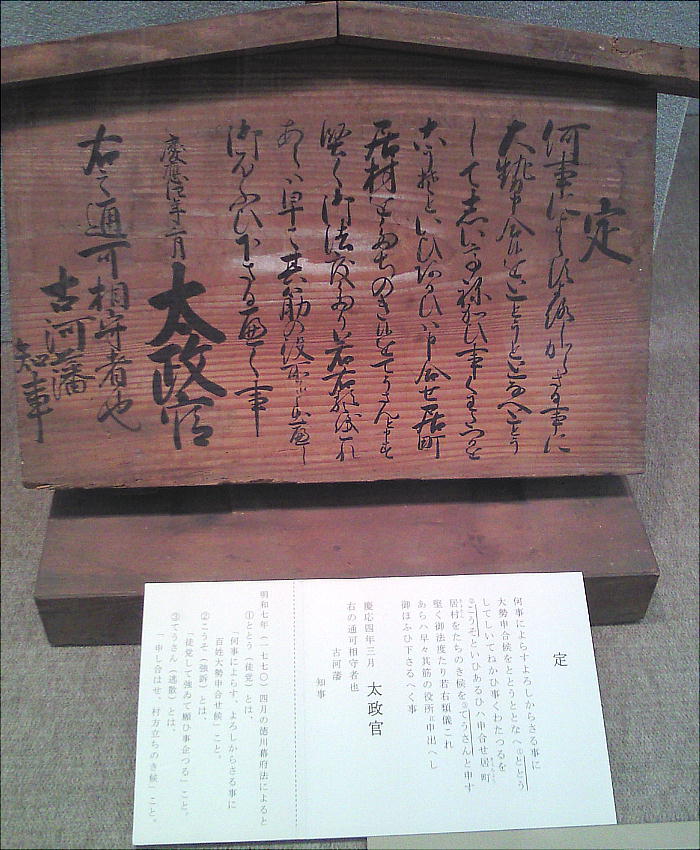 定
何事によらすよろしからさる事に
大勢申合候をととうととなへ
して志いてねかひ事くわたつるを
こうそといひあるひハ申合せ居町
居村をたちのき候をてうさんと申す
堅く御法度たり若右類儀これ
あらハ早々其筋の役所江申出へし
御ほふひ下さるへく事
慶應四年三月
太政官
右之通可相守者也
古河藩
知事
定
何事によらすよろしからさる事に
大勢申合候をととうととなへ①ととう
してしいてねかひ事くわたつるを
②こうそといひあるひハ申合せ居町
居村をたちのき候を③てうさんと申す
堅く御法度たり若右類儀これ
あらハ早々其筋の役所江申出へし
御ほふひ下さるへく事
慶応四年三月 太政官
右の通可相守者也
古河藩
知事
明和七年(一七七〇)四月の徳川幕府法によると
①ととう(徒党)とは
「何事によらす、よろしからさる事に
百姓大勢申合せ候」こと。
②こうそ(強訴)とは、
「徒党して強ゐて願ひ事企つる」こと。
③てうさん(逃散)とは、
「申し合はせ、村方立ちのき候」こと。